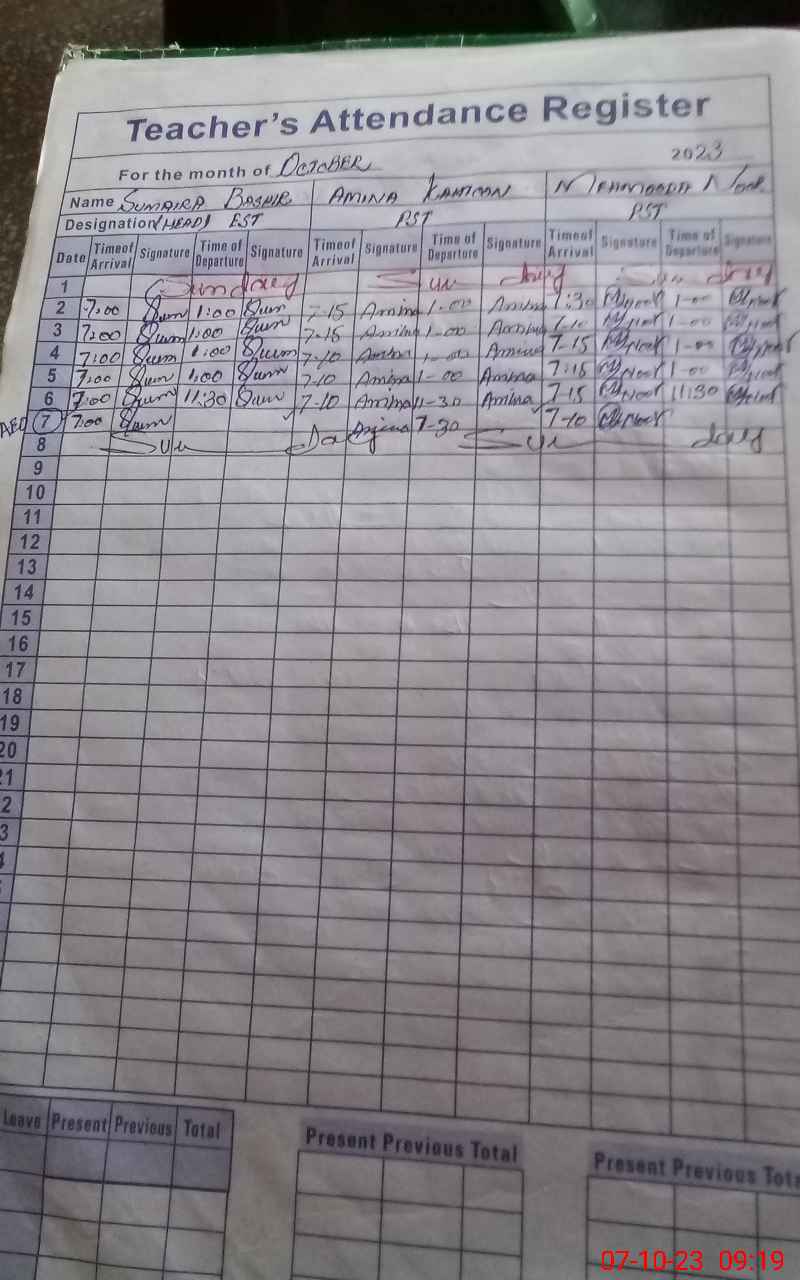 Teacher's Attendance Register
For the month of October 2023
Name Sumaira Bashir Amina Mahmooda Noor
Designation (HEAD) EST PST PST
Date Timeof Arrival Signature Time of Departure Signature Timeof Arrival Signature Time of Departure Signature Timeof Arrival Signature Time of Departure Signature
1 Sunday Sunday Sunday
2 7:00 Sum 1:00 Sum 7-15 Amina 1-00 Amina 7:30 1-00
3 7:00 Sum 1:00 Sum 7-15 Amina 1-00 Amina 7-10 1-00
4 7:00 Sum 1:00 Sum 7-10 Amina 1-00 Amina 7-15 1-00
5 7:00 Sum 1:00 Sum 7-10 Amina 1-00 Amina 7:15 1-00
6 7:00 Sum 11:30 Sum 7-10 Amina 11-30 Amina 7-15 11:30
AEO 7 7:00 Sum 7-30 7-10
8 Sun Day Sun day
9
10
11
12
13
14
15
16
17
18
19
20
21
2
3
Leave Present Previous Total
Present Previous Total
Present Previous Tota
07-10-23 09:19